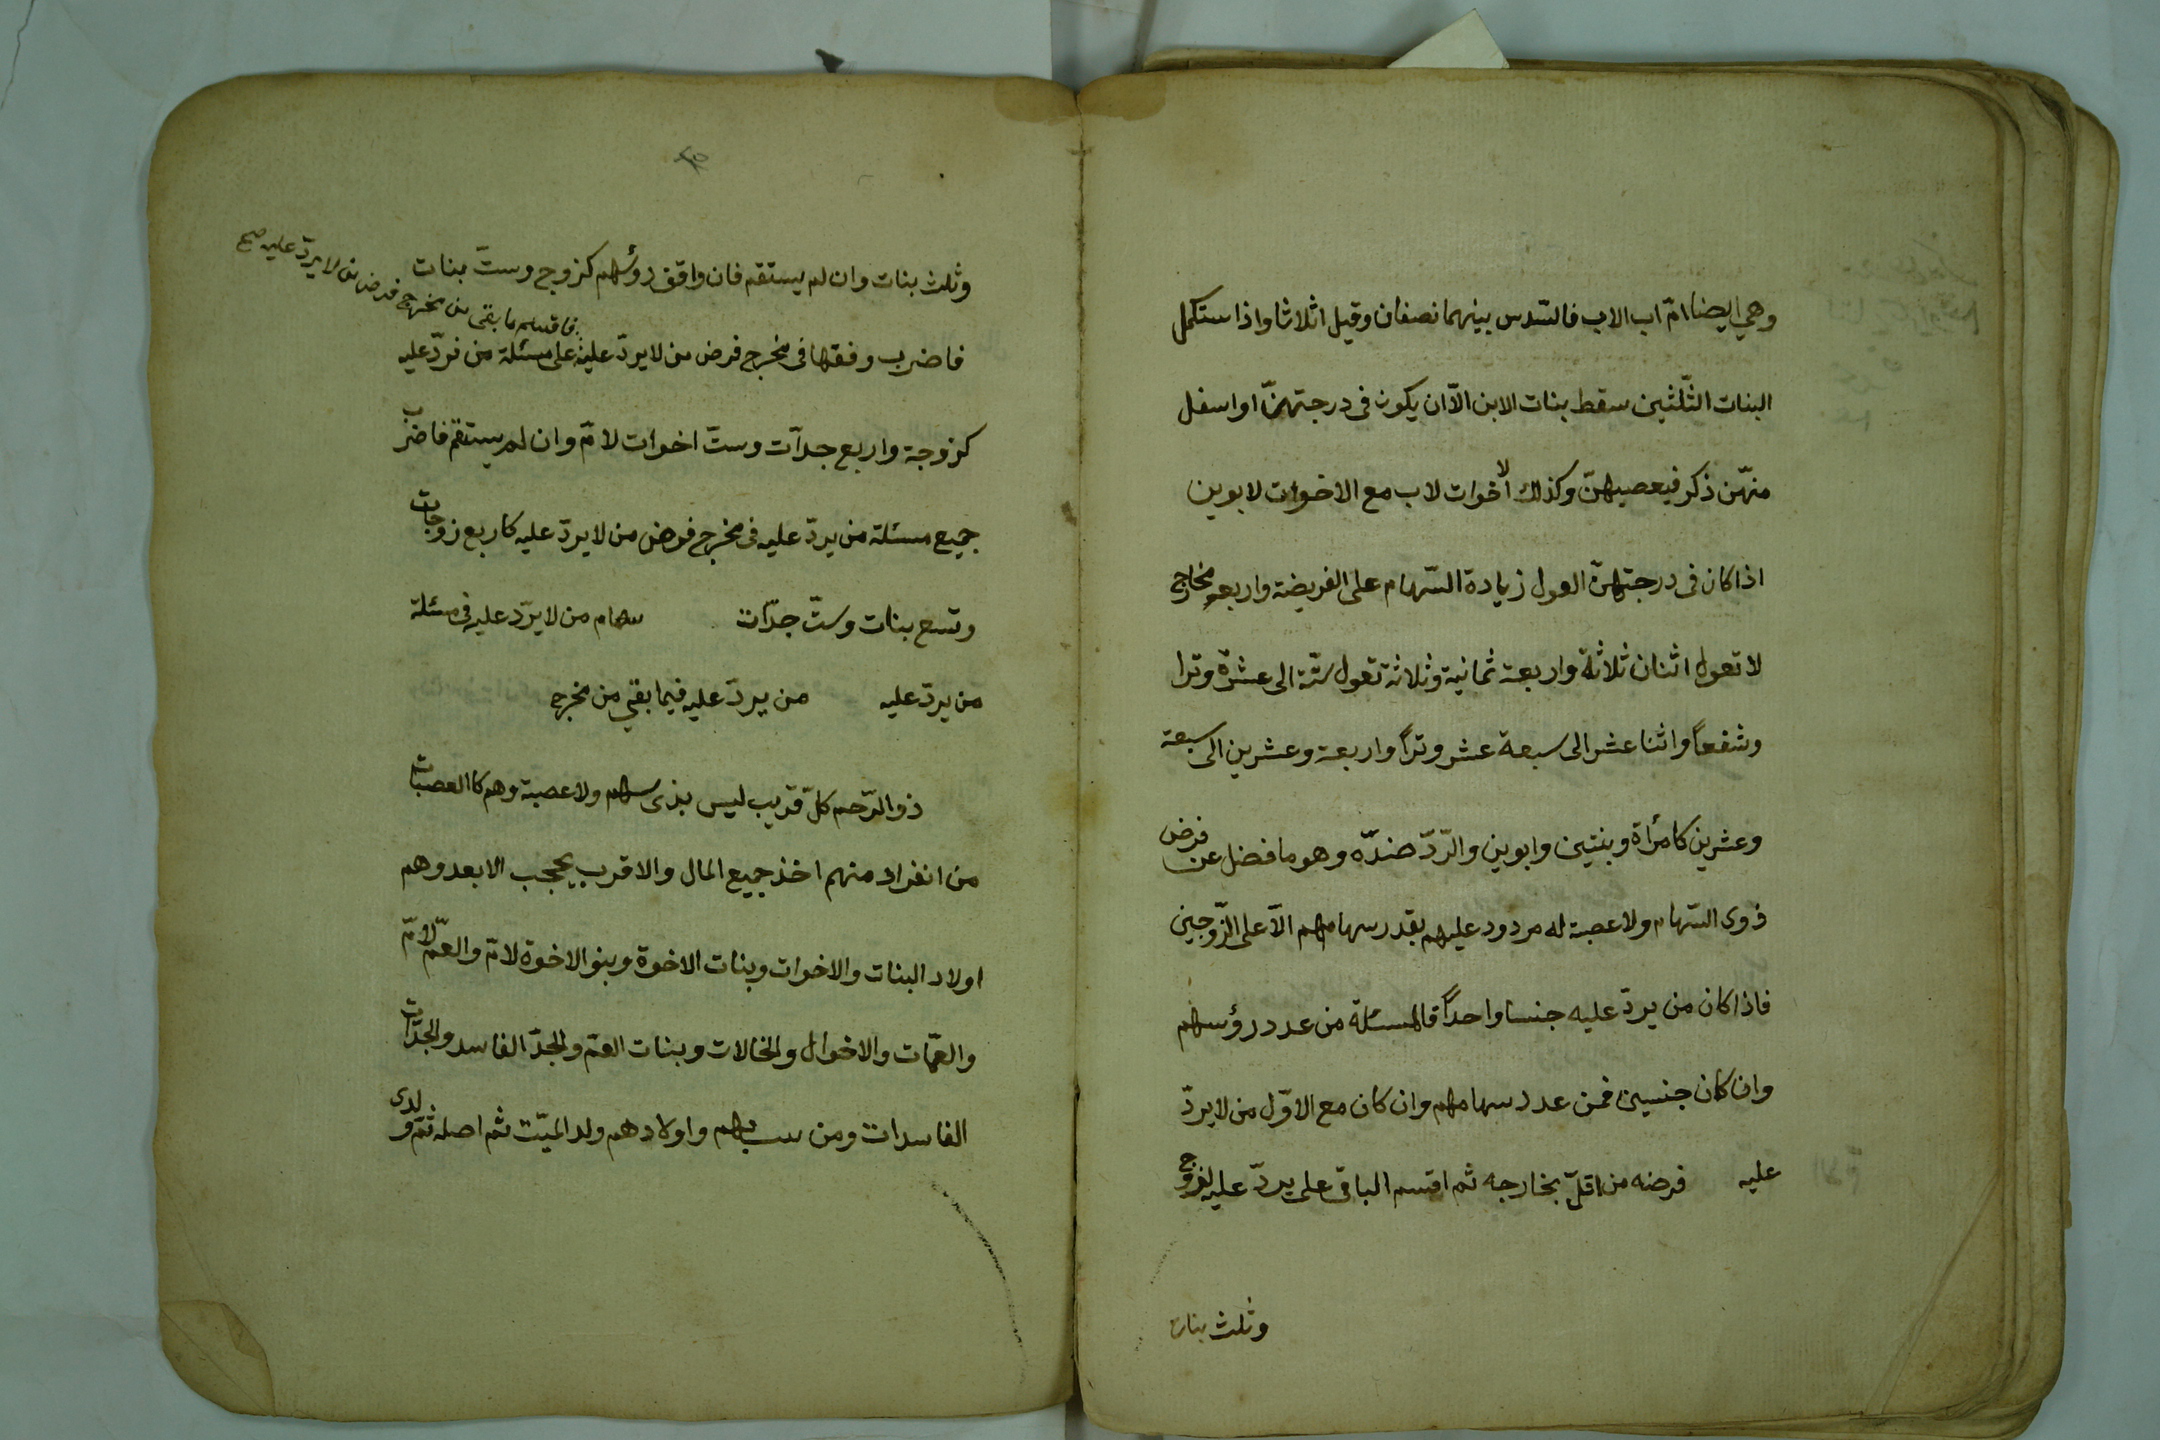 وهي ايضا امّ اب الاب فالسّدس بينهما نصفان وقيل اثلاثا واذا ستكمل
البنات الثّلثين سقط بنات الابن الاّ ان يكون فى درجتهنّ او اسفل
منهّن ذكر فيعصبهنّ وكذلك الاخوات لاب مع الاخوات لابوين
اذا كان فى درجتهنّ العول زيادة السّهام على الفريضة واربعة مخارج
لا تعول اثنان ثلاثة واربعة ثمانية وثلاثة تعول ستّة الى عشرة وترا
وشفعاً واثنا عشر الى سبعة عشر وتراً واربعة وعشرين الى سبعة
وعشرين كامرأة وبنتين وابوين والرّدّ ضدّه وهو ما فضل عن فرض
ذوى السّهام ولا عصبة له مردود عليهم بقدر سهامهم الاّ على الزّوجين
فاذا كان من يردّ عليه جنسا واحداً فالمسئلة من عدد رؤسهم
وان كان جنسين فمن عدد سهامهم وان كان مع الاوّل من لا يردّ
عليه فرضه من اقلّ بخارجه ثم اقسم الباقى على يردّ عليه لزوج
وثلث بنات
وثلث بنات وان لم يستقم فان وافق رؤسهم كزوج وستّ بنات
فاضرب وفقها فى مخرج فرض من لا يردّ عليه على مسئلة من نردّ عليه
فاقسم ما بقى من مخرج فرض من لا يردّ عليه صح
كزوجة واربع جدّات وستّ اخوات لامّ وان لم يستقم فاضرب
جميع مسئلة من يردّ عليه فى مخرج فرض من لا يردّ عليه كاربع زوجات
وتسع بنات وستّ جدّات سهام من لا يردّ عليه فى مسئلة
من يردّ عليه من يردّ عليه فيما بقي من مخرج
ذو الرّحم كلّ قريب ليس بذى سهم ولا عصبة وهم كا العصبات
من انفراد منهم اخذ جميع المال والاقرب يحجب الابعد وهم
اولاد البنات والاخوات وبنات الاخوة وبنو الاخوة لامّ والعمّ لامّ
والعمّات والاخوال والخالات وبنات العمّ والجدّ الفاسد والجدّات
الفاسدات ومن بهم واولادهم ولد الميّت ثم اصله ثمّ ولدى